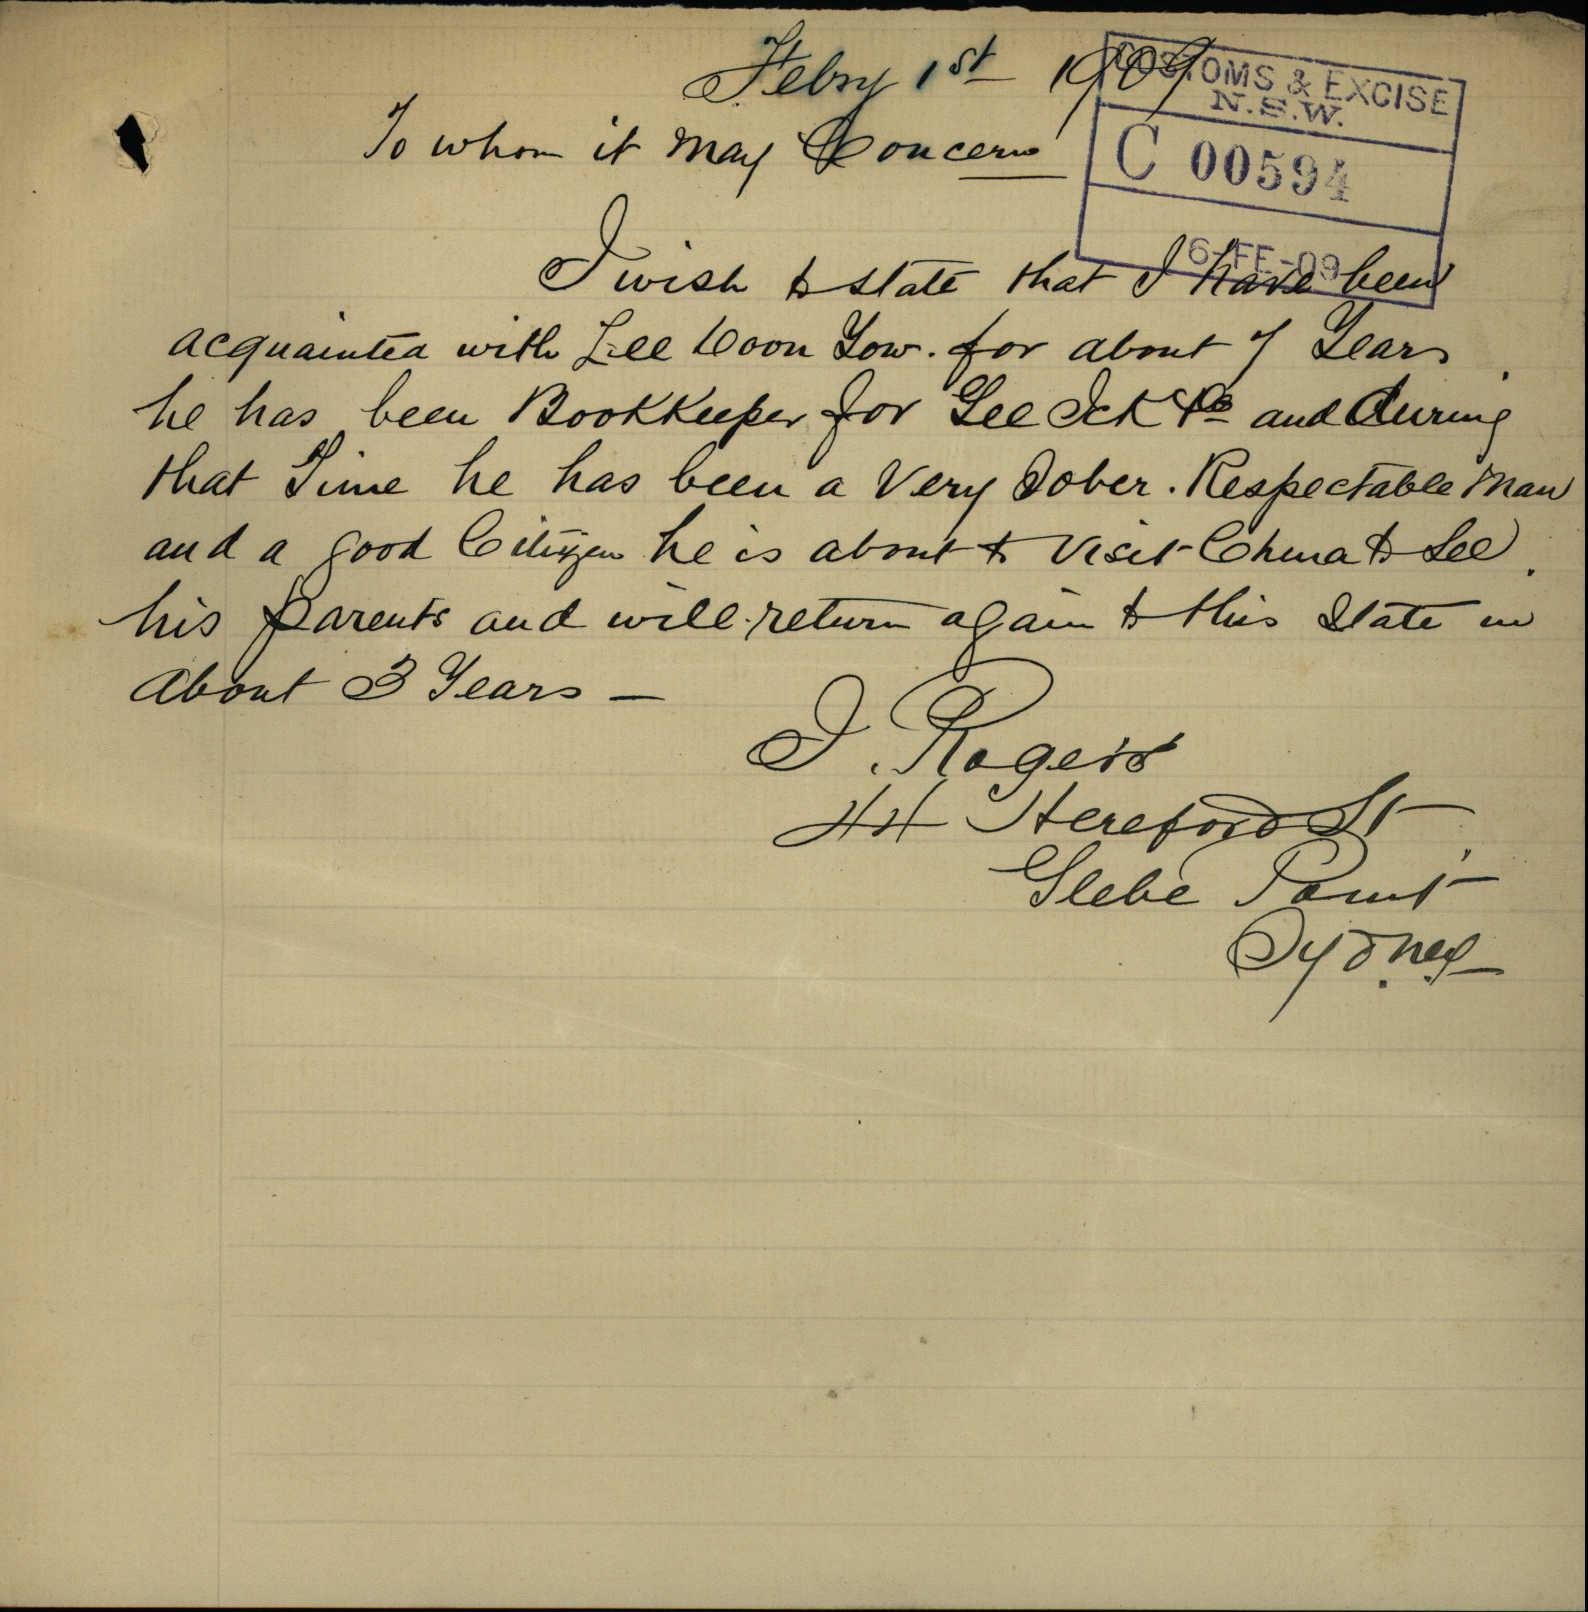 Febry 1st 1909
To whom it May Concern
CUSTOMS & EXCISE
N.S.W.
C 00594
6-FE-09
I wish to state that I have been
acquainted with Lee Coon Yow. for about 7 Years
he has been BookKeeper for Gee Ick & Co and During
that Time he has been a Very Sober. Respectable Man
and a good Citizen he is about to Visit China to See
his parents and will return again to this State in
About 3 Years —
J. Rogers
44 Hereford St
Glebe Point
Sydney